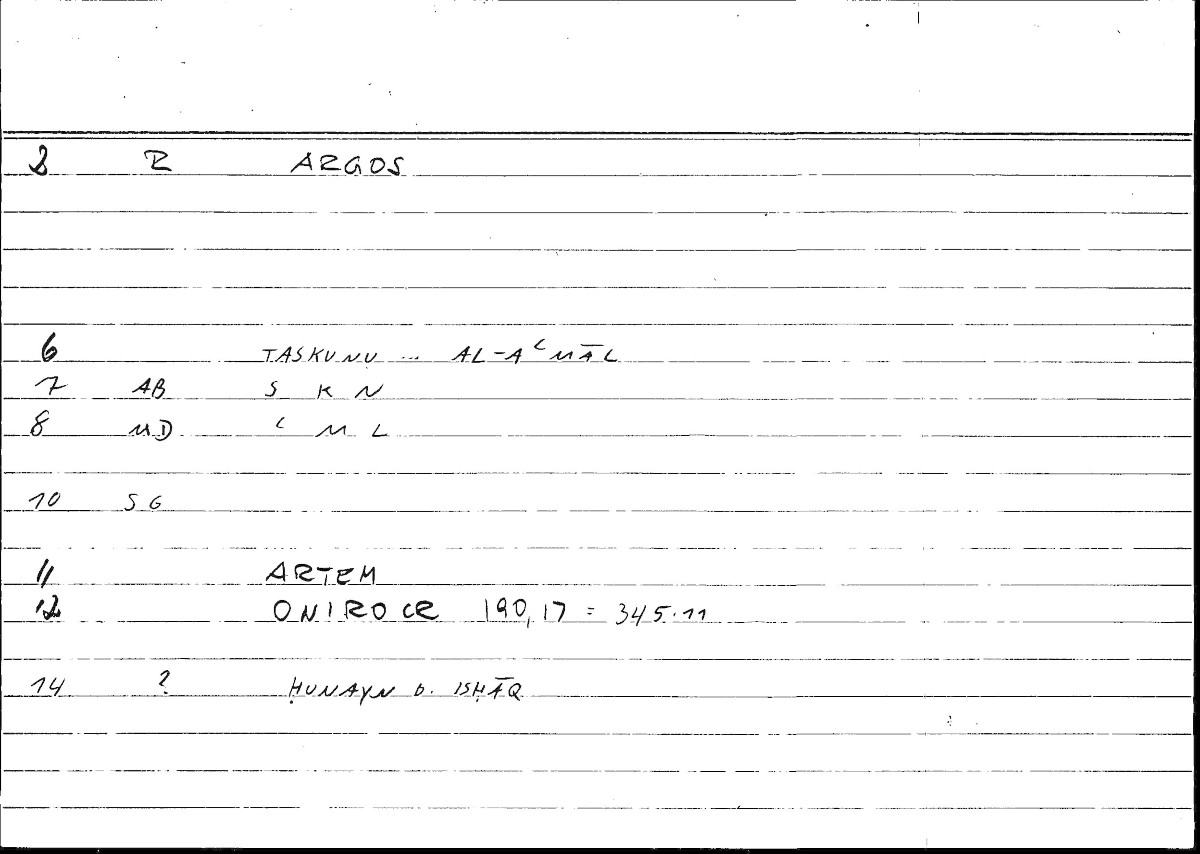 2 R ARGOS
6 TASKUNU ... AL-AʿMĀL
7 AB S K N
8 MD ʿ M L
10 SG
11 ARTEM
12 ONIROCR 190,17 = 345.11
14 ? ḤUNAYN B. ISḤĀQ